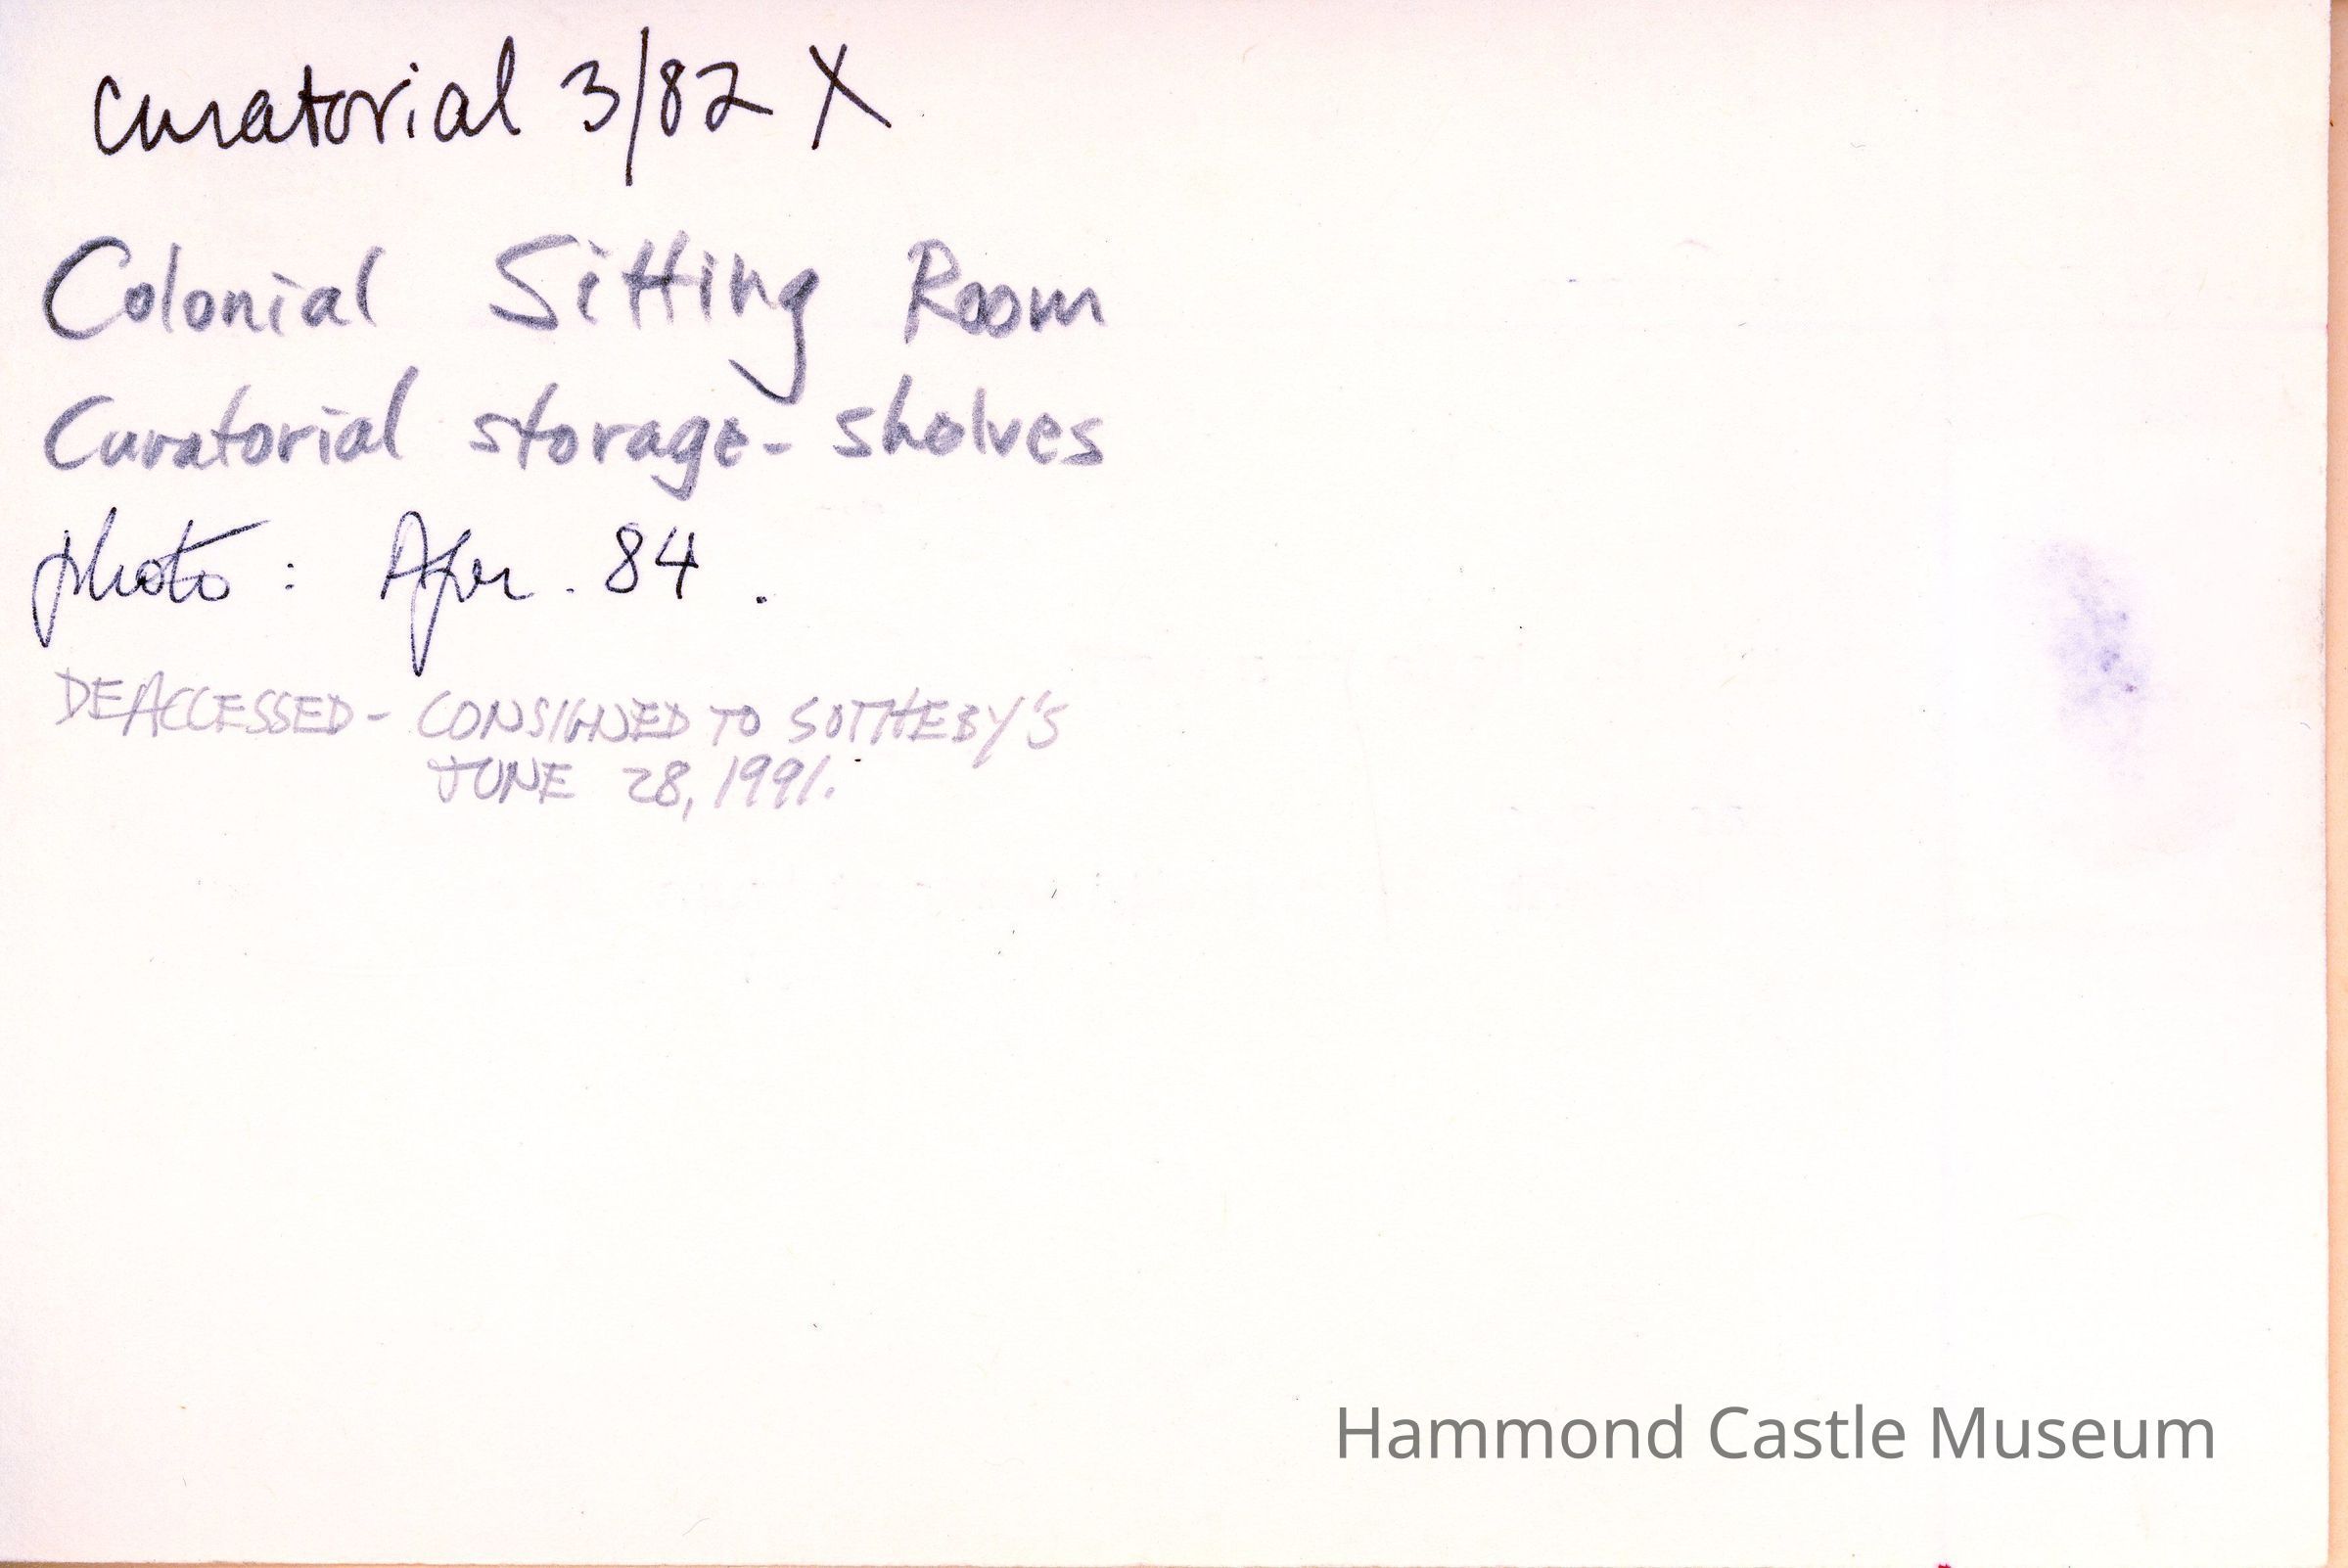 Curatorial 3/82 X
Colonial Sitting Room
Curatorial storage - shelves
photo : Apr. 84 .
DEACCESSED - CONSIGNED TO SOTHEBY'S
JUNE 28, 1991.
Hammond Castle Museum